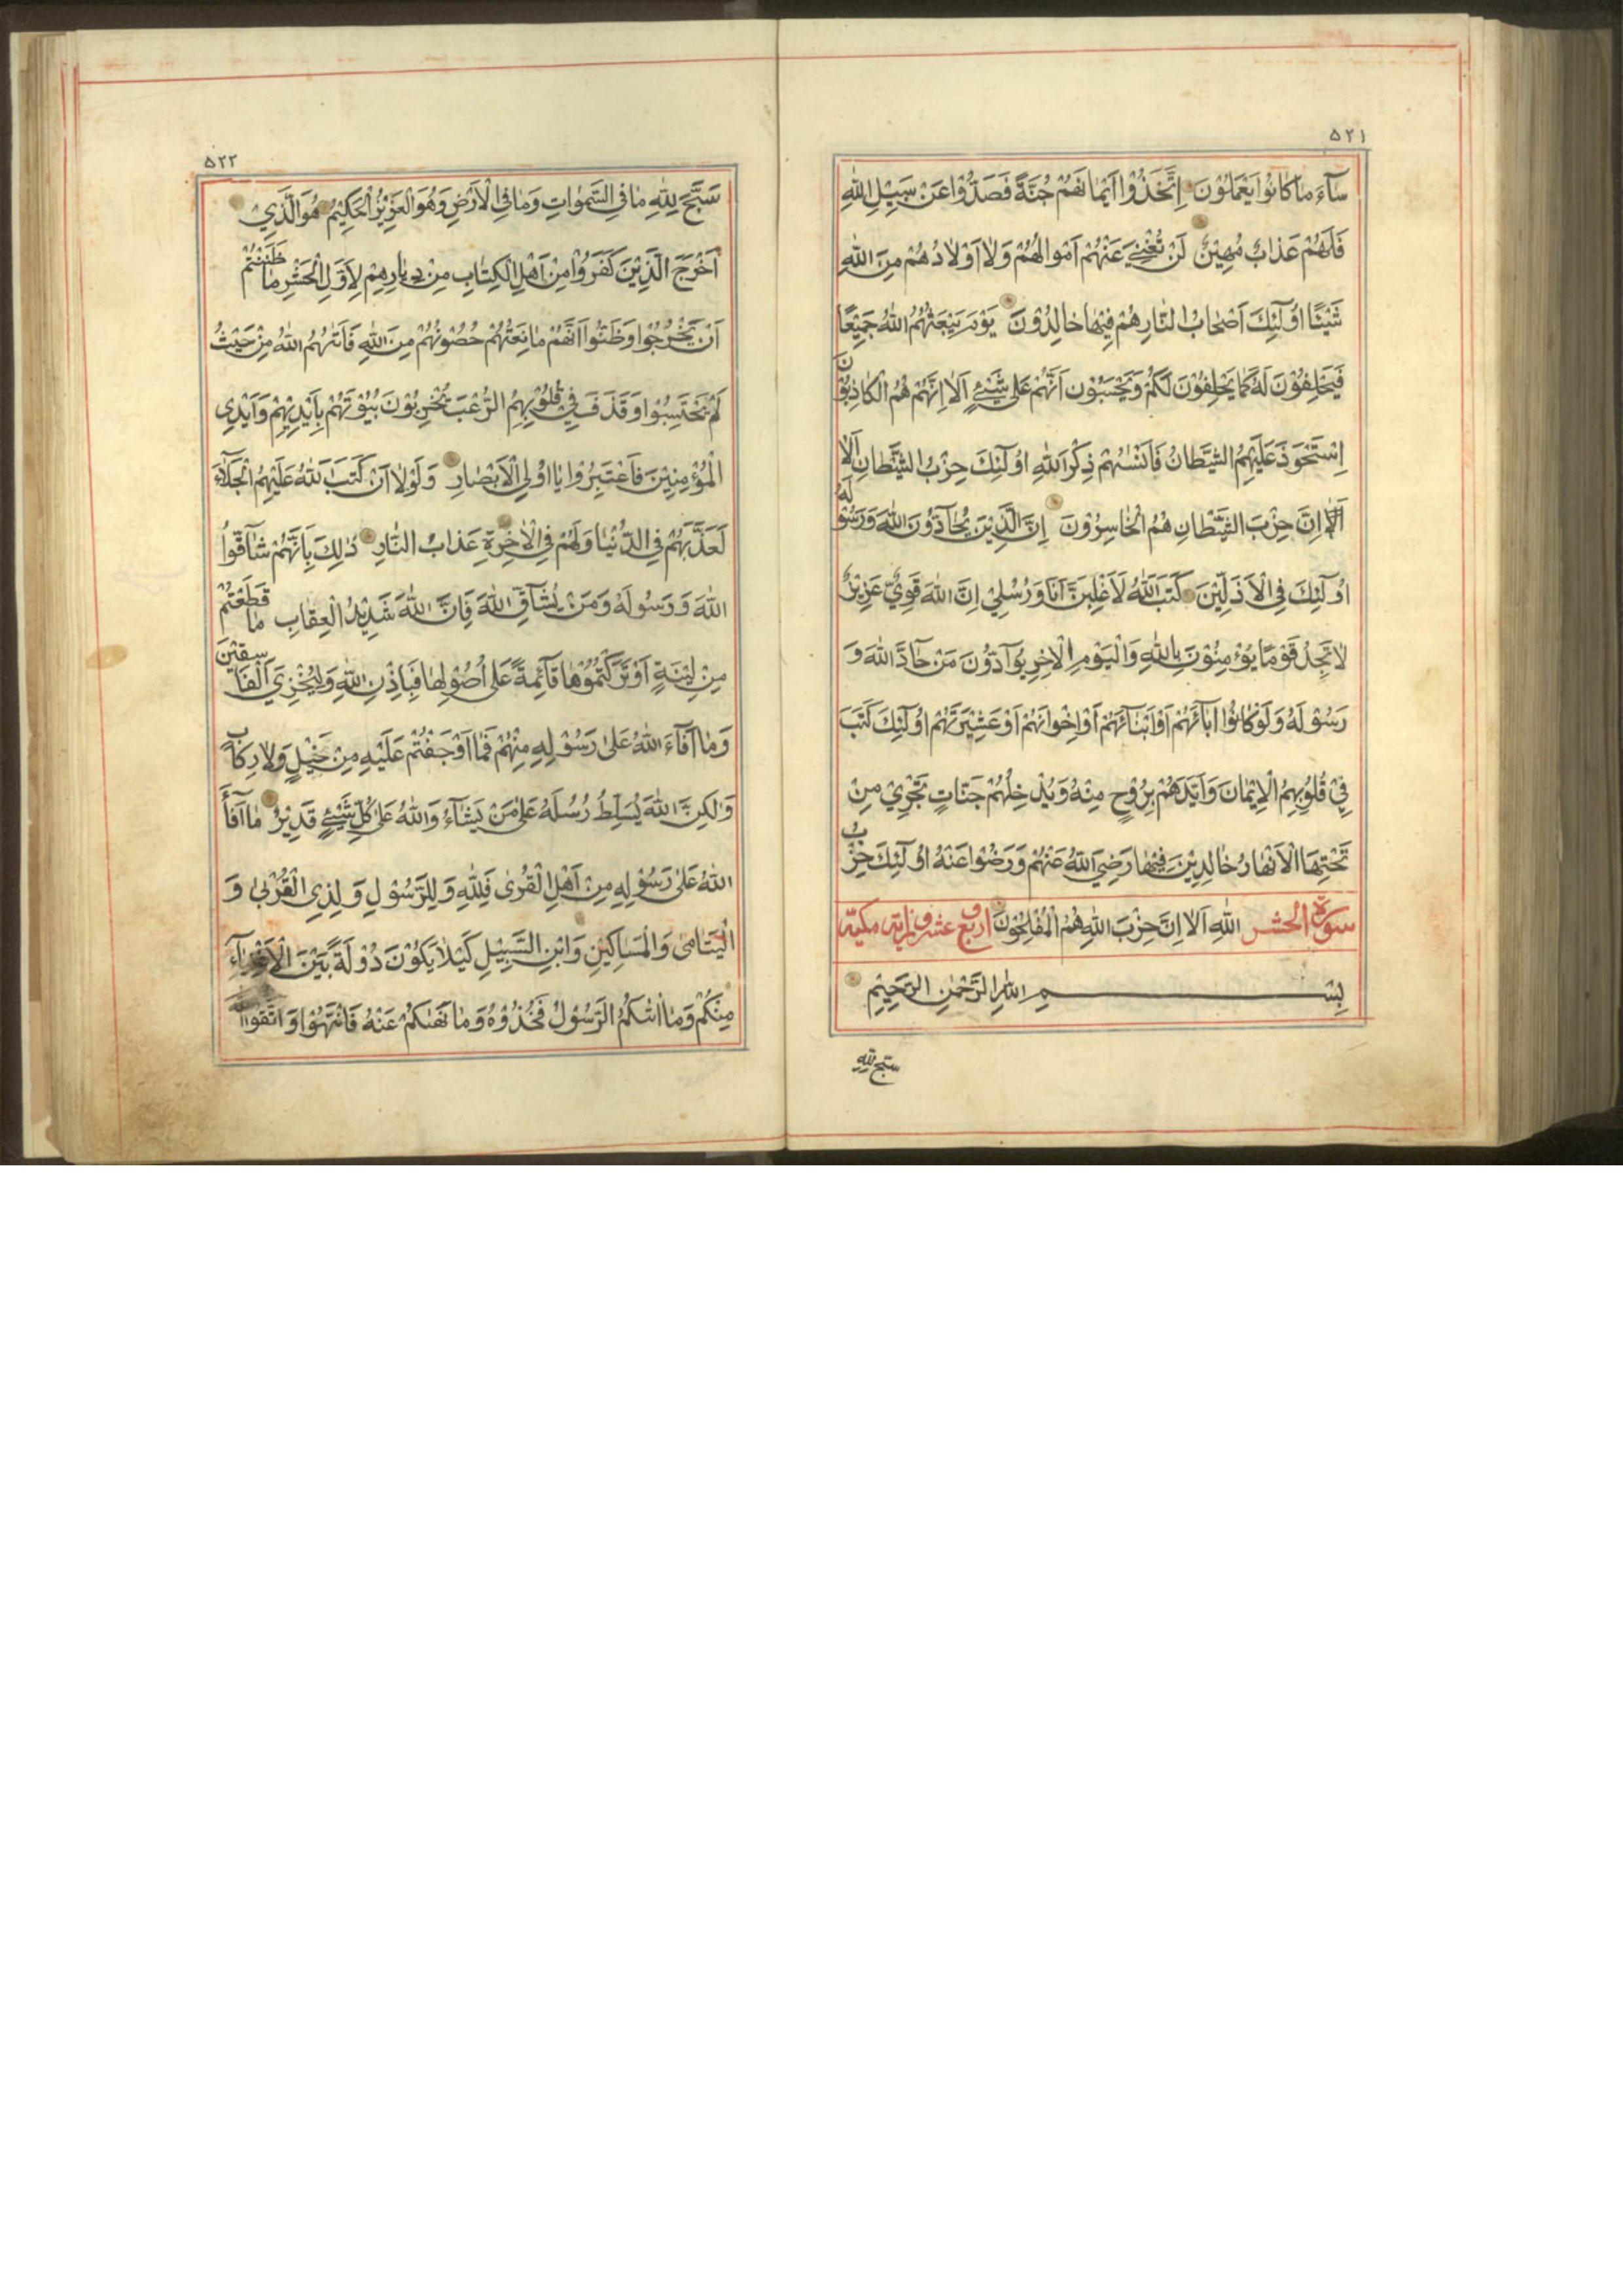 ٥٢١
سَآءَ مٰا كٰانُوا يَعْمَلُوْنَ اِتَّخَذُوْا اَيْمٰانَهُمْ جُنَّةً فَصَدُّوْا عَنْ سَبِيْلِ اللّٰهِ
فَلَهُمْ عَذٰابٌ مُهِيْنٌ لَنْ تُغْنِيَ عَنْهُمْ اَمْوٰالُهُمْ وَلٰا اَوْلٰادُهُمْ مِنَ اللّٰهِ
شَيْئًا اُولٰٓئِكَ اَصْحٰابُ النّٰارِ هُمْ فِيْهٰا خٰالِدُوْنَ يَوْمَ يَبْعَثُهُمُ اللّٰهُ جَمِيْعًا
فَيَحْلِفُوْنَ لَهُ كَمٰا يَحْلِفُوْنَ لَكُمْ وَيَحْسَبُوْنَ اَنَّهُمْ عَلٰى شَيْئٍ اَلٰا اِنَّهُمْ هُمُ الْكٰاذِبُوْنَ
اِسْتَحْوَذَ عَلَيْهِمُ الشَّيْطٰانُ فَاَنْسٰىهُمْ ذِكْرَ اللّٰهِ اُولٰٓئِكَ حِزْبُ الشَّيْطٰانِ اَلٰا
اَلٰا اِنَّ حِزْبَ الشَّيْطٰانِ هُمُ الْخٰاسِرُوْنَ اِنَّ الَّذِيْنَ يُحٰآدُّوْنَ اللّٰهَ وَرَسُوْلَهُ
اُولٰٓئِكَ فِي الْاَذَلِّيْنَ كَتَبَ اللّٰهُ لَاَغْلِبَنَّ اَنَا وَرُسُلِيْ اِنَّ اللّٰهَ قَوِيٌّ عَزِيْزٌ
لٰا تَجِدُ قَوْمًا يُؤْمِنُوْنَ بِاللّٰهِ وَالْيَوْمِ الْاٰخِرِ يُوٰآدُّوْنَ مَنْ حٰآدَّ اللّٰهَ وَ
رَسُوْلَهُ وَلَوْ كٰانُوْا اٰبٰآئَهُمْ اَوْ اَبْنٰآئَهُمْ اَوْ اِخْوٰانَهُمْ اَوْ عَشِيْرَتَهُمْ اُولٰٓئِكَ كَتَبَ
فِيْ قُلُوْبِهِمُ الْاِيْمٰانَ وَاَيَّدَهُمْ بِرُوْحٍ مِنْهُ وَيُدْخِلُهُمْ جَنّٰاتٍ تَجْرِيْ مِنْ
تَحْتِهَا الْاَنْهٰارُ خٰالِدِيْنَ فِيْهٰا رَضِيَ اللّٰهُ عَنْهُمْ وَرَضُوْا عَنْهُ اُولٰٓئِكَ حِزْبُ
سورة الحشر اللّٰهِ اَلٰا اِنَّ حِزْبَ اللّٰهِ هُمُ الْمُفْلِحُوْنَ اربع عشرون اية مكية
بِسْمِ اللّٰهِ الرَّحْمٰنِ الرَّحِيْمِ
سبح لله
٥٢٢
سَبَّحَ لِلّٰهِ مٰا فِي السَّمٰوٰاتِ وَمٰا فِي الْاَرْضِ وَهُوَ الْعَزِيْزُ الْحَكِيْمُ هُوَ الَّذِيْ
اَخْرَجَ الَّذِيْنَ كَفَرُوْا مِنْ اَهْلِ الْكِتٰابِ مِنْ دِيٰارِهِمْ لِاَوَّلِ الْحَشْرِ مٰا ظَنَنْتُمْ
اَنْ يَخْرُجُوْا وَظَنُّوْا اَنَّهُمْ مٰانِعَتُهُمْ حُصُوْنُهُمْ مِنَ اللّٰهِ فَاَتٰىهُمُ اللّٰهُ مِنْ حَيْثُ
لَمْ يَحْتَسِبُوْا وَقَذَفَ فِيْ قُلُوْبِهِمُ الرُّعْبَ يُخْرِبُوْنَ بُيُوْتَهُمْ بِاَيْدِيْهِمْ وَاَيْدِي
الْمُؤْمِنِيْنَ فَاعْتَبِرُوْا يٰا اُولِي الْاَبْصٰارِ وَلَوْلٰا اَنْ كَتَبَ اللّٰهُ عَلَيْهِمُ الْجَلٰآءَ
لَعَذَّبَهُمْ فِي الدُّنْيٰا وَلَهُمْ فِي الْاٰخِرَةِ عَذٰابُ النّٰارِ ذٰلِكَ بِاَنَّهُمْ شٰآقُّوا
اللّٰهَ وَرَسُوْلَهُ وَمَنْ يُشٰآقِّ اللّٰهَ فَاِنَّ اللّٰهَ شَدِيْدُ الْعِقٰابِ مٰا قَطَعْتُمْ
مِنْ لِيْنَةٍ اَوْ تَرَكْتُمُوْهٰا قٰآئِمَةً عَلٰى اُصُوْلِهٰا فَبِاِذْنِ اللّٰهِ وَلِيُخْزِيَ الْفٰاسِقِيْنَ
وَمٰا اَفٰآءَ اللّٰهُ عَلٰى رَسُوْلِهِ مِنْهُمْ فَمٰا اَوْجَفْتُمْ عَلَيْهِ مِنْ خَيْلٍ وَلٰا رِكٰابٍ
وَلٰكِنَّ اللّٰهَ يُسَلِّطُ رُسُلَهُ عَلٰى مَنْ يَشٰآءُ وَاللّٰهُ عَلٰى كُلِّ شَيْئٍ قَدِيْرٌ مٰا اَفٰآءَ
اللّٰهُ عَلٰى رَسُوْلِهِ مِنْ اَهْلِ الْقُرٰى فَلِلّٰهِ وَلِلرَّسُوْلِ وَلِذِي الْقُرْبٰى وَ
الْيَتٰامٰى وَالْمَسٰاكِيْنِ وَابْنِ السَّبِيْلِ كَيْلٰا يَكُوْنَ دُوْلَةً بَيْنَ الْاَغْنِيٰآءِ
مِنْكُمْ وَمٰا اٰتٰىكُمُ الرَّسُوْلُ فَخُذُوْهُ وَمٰا نَهٰىكُمْ عَنْهُ فَانْتَهُوْا وَاتَّقُوا اللّٰهَ